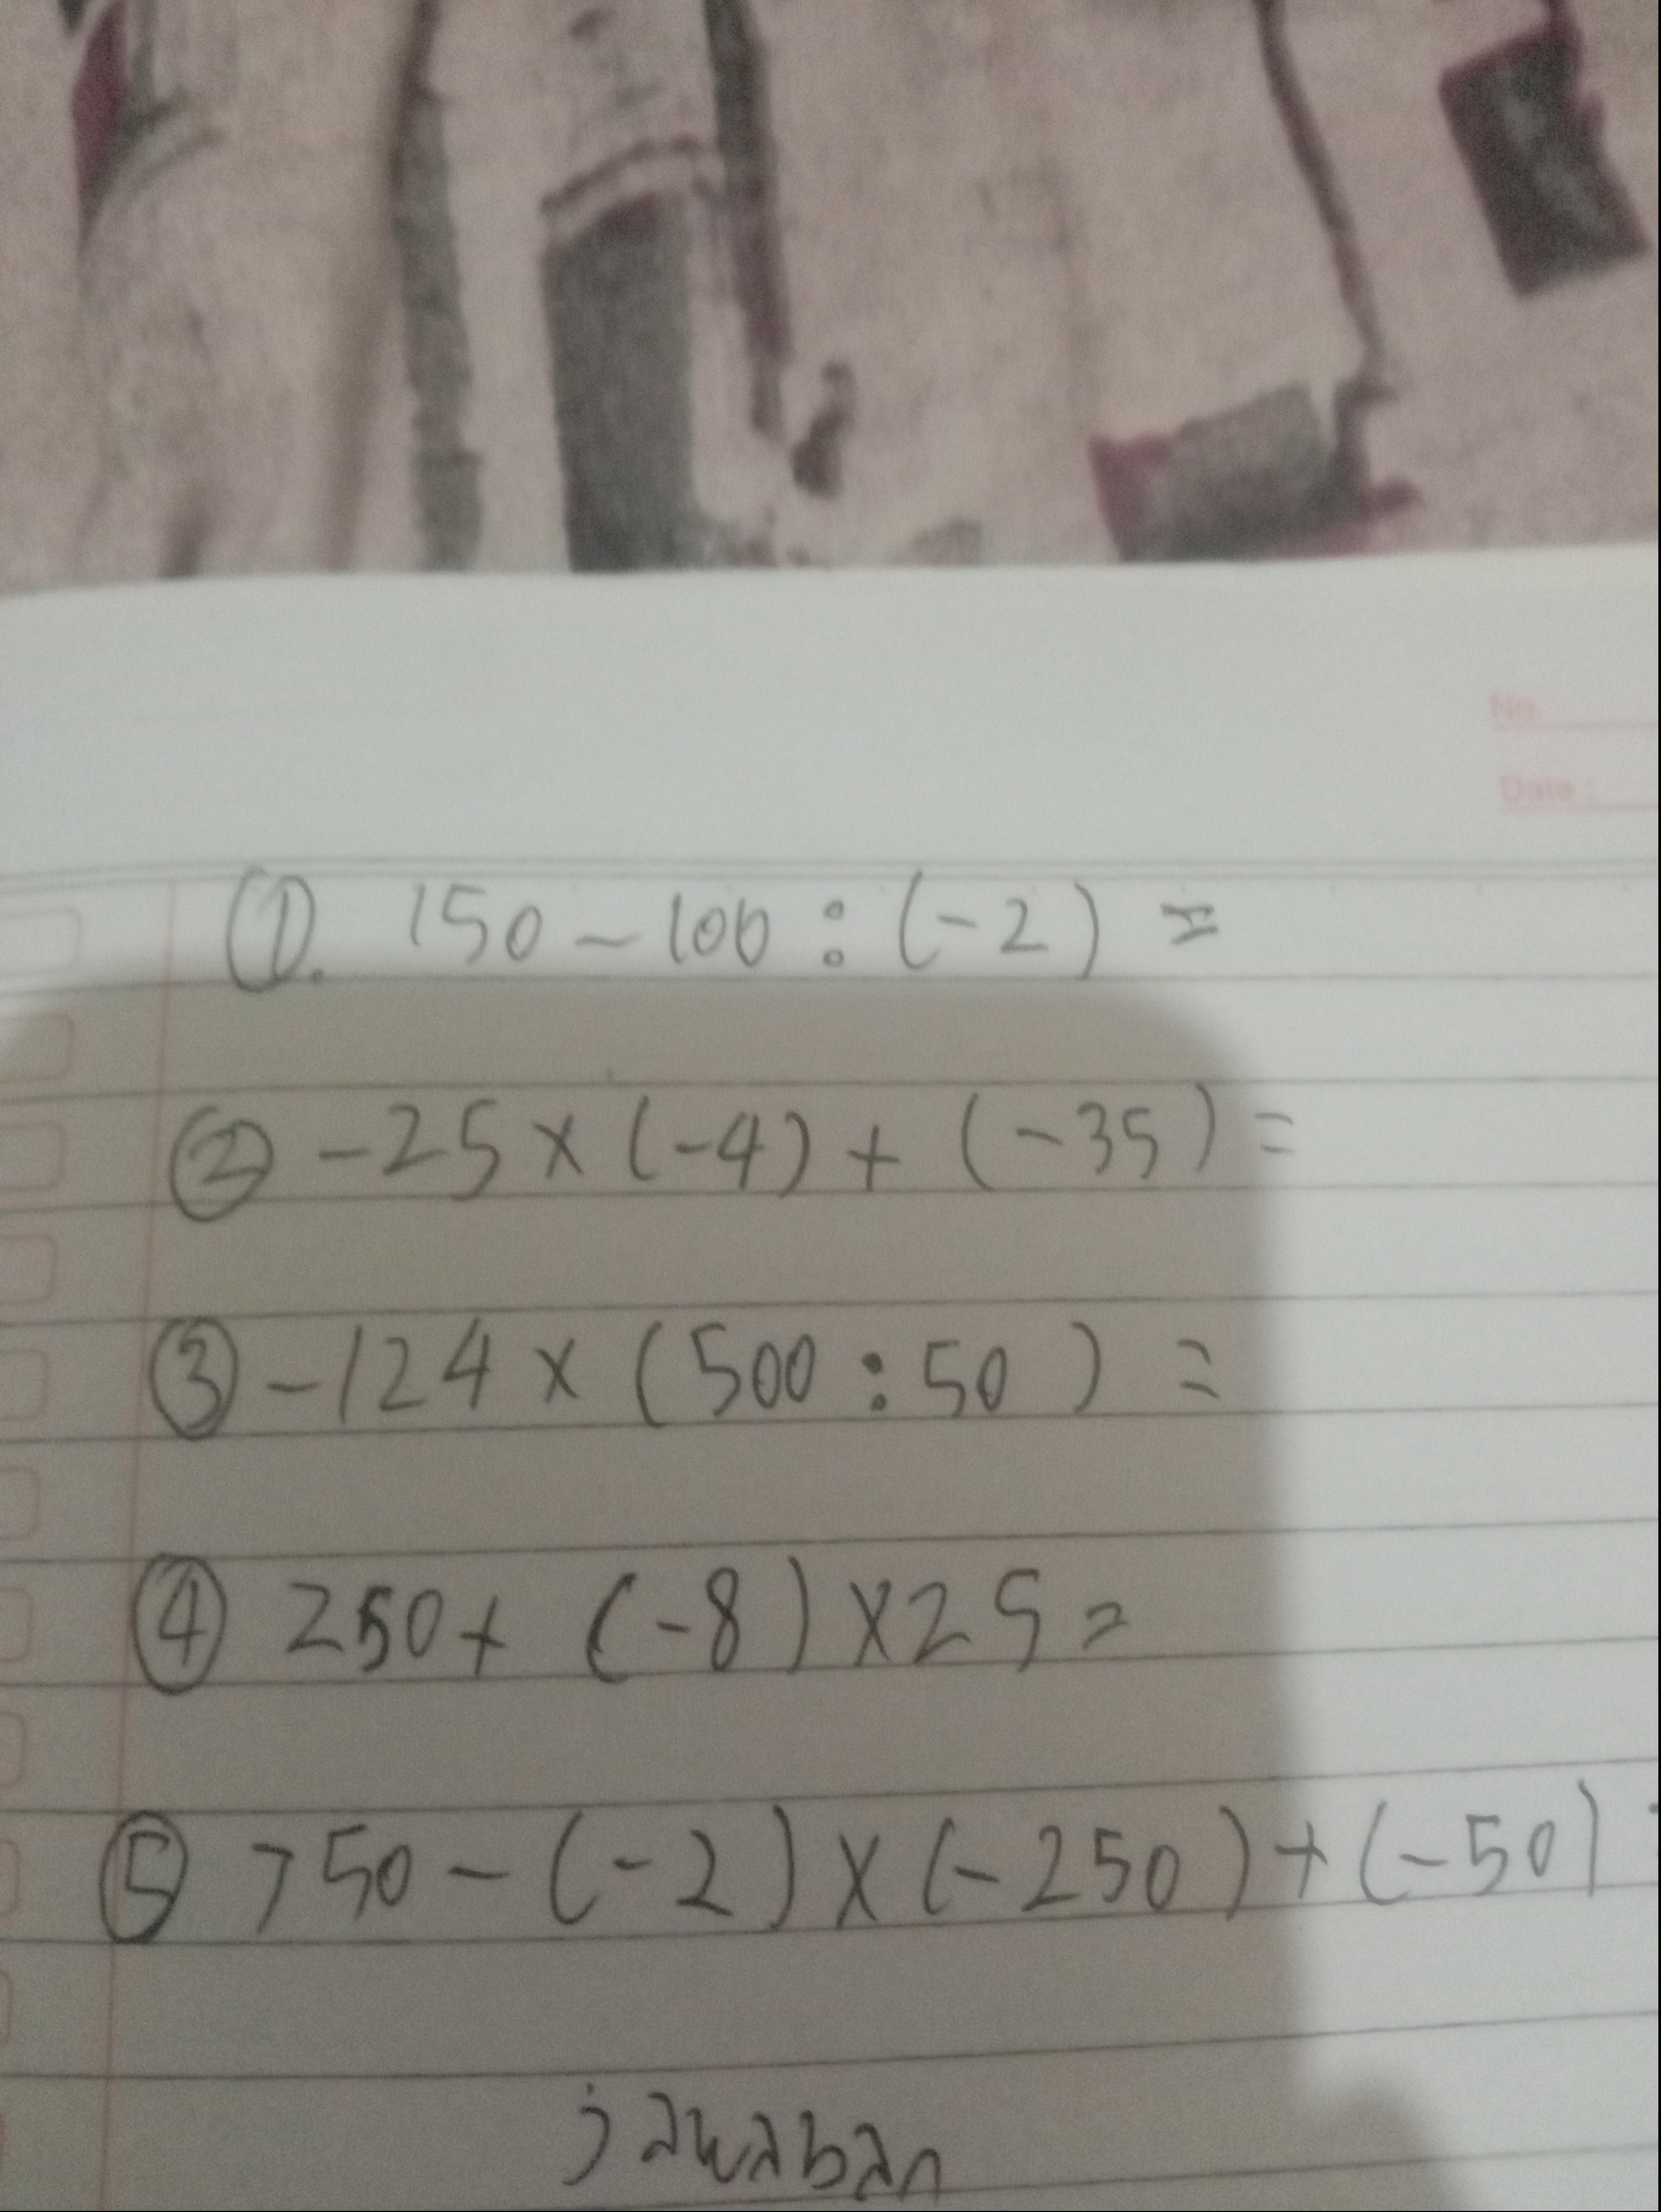 No.
Date :
①. 150 - 100 : (-2) =
② -25 x (-4) + (-35) =
③ -124 x (500 : 50) =
④ 250 + (-8) x 25 =
⑤ 750 - (-2) x (-250) + (-50) =
jawaban